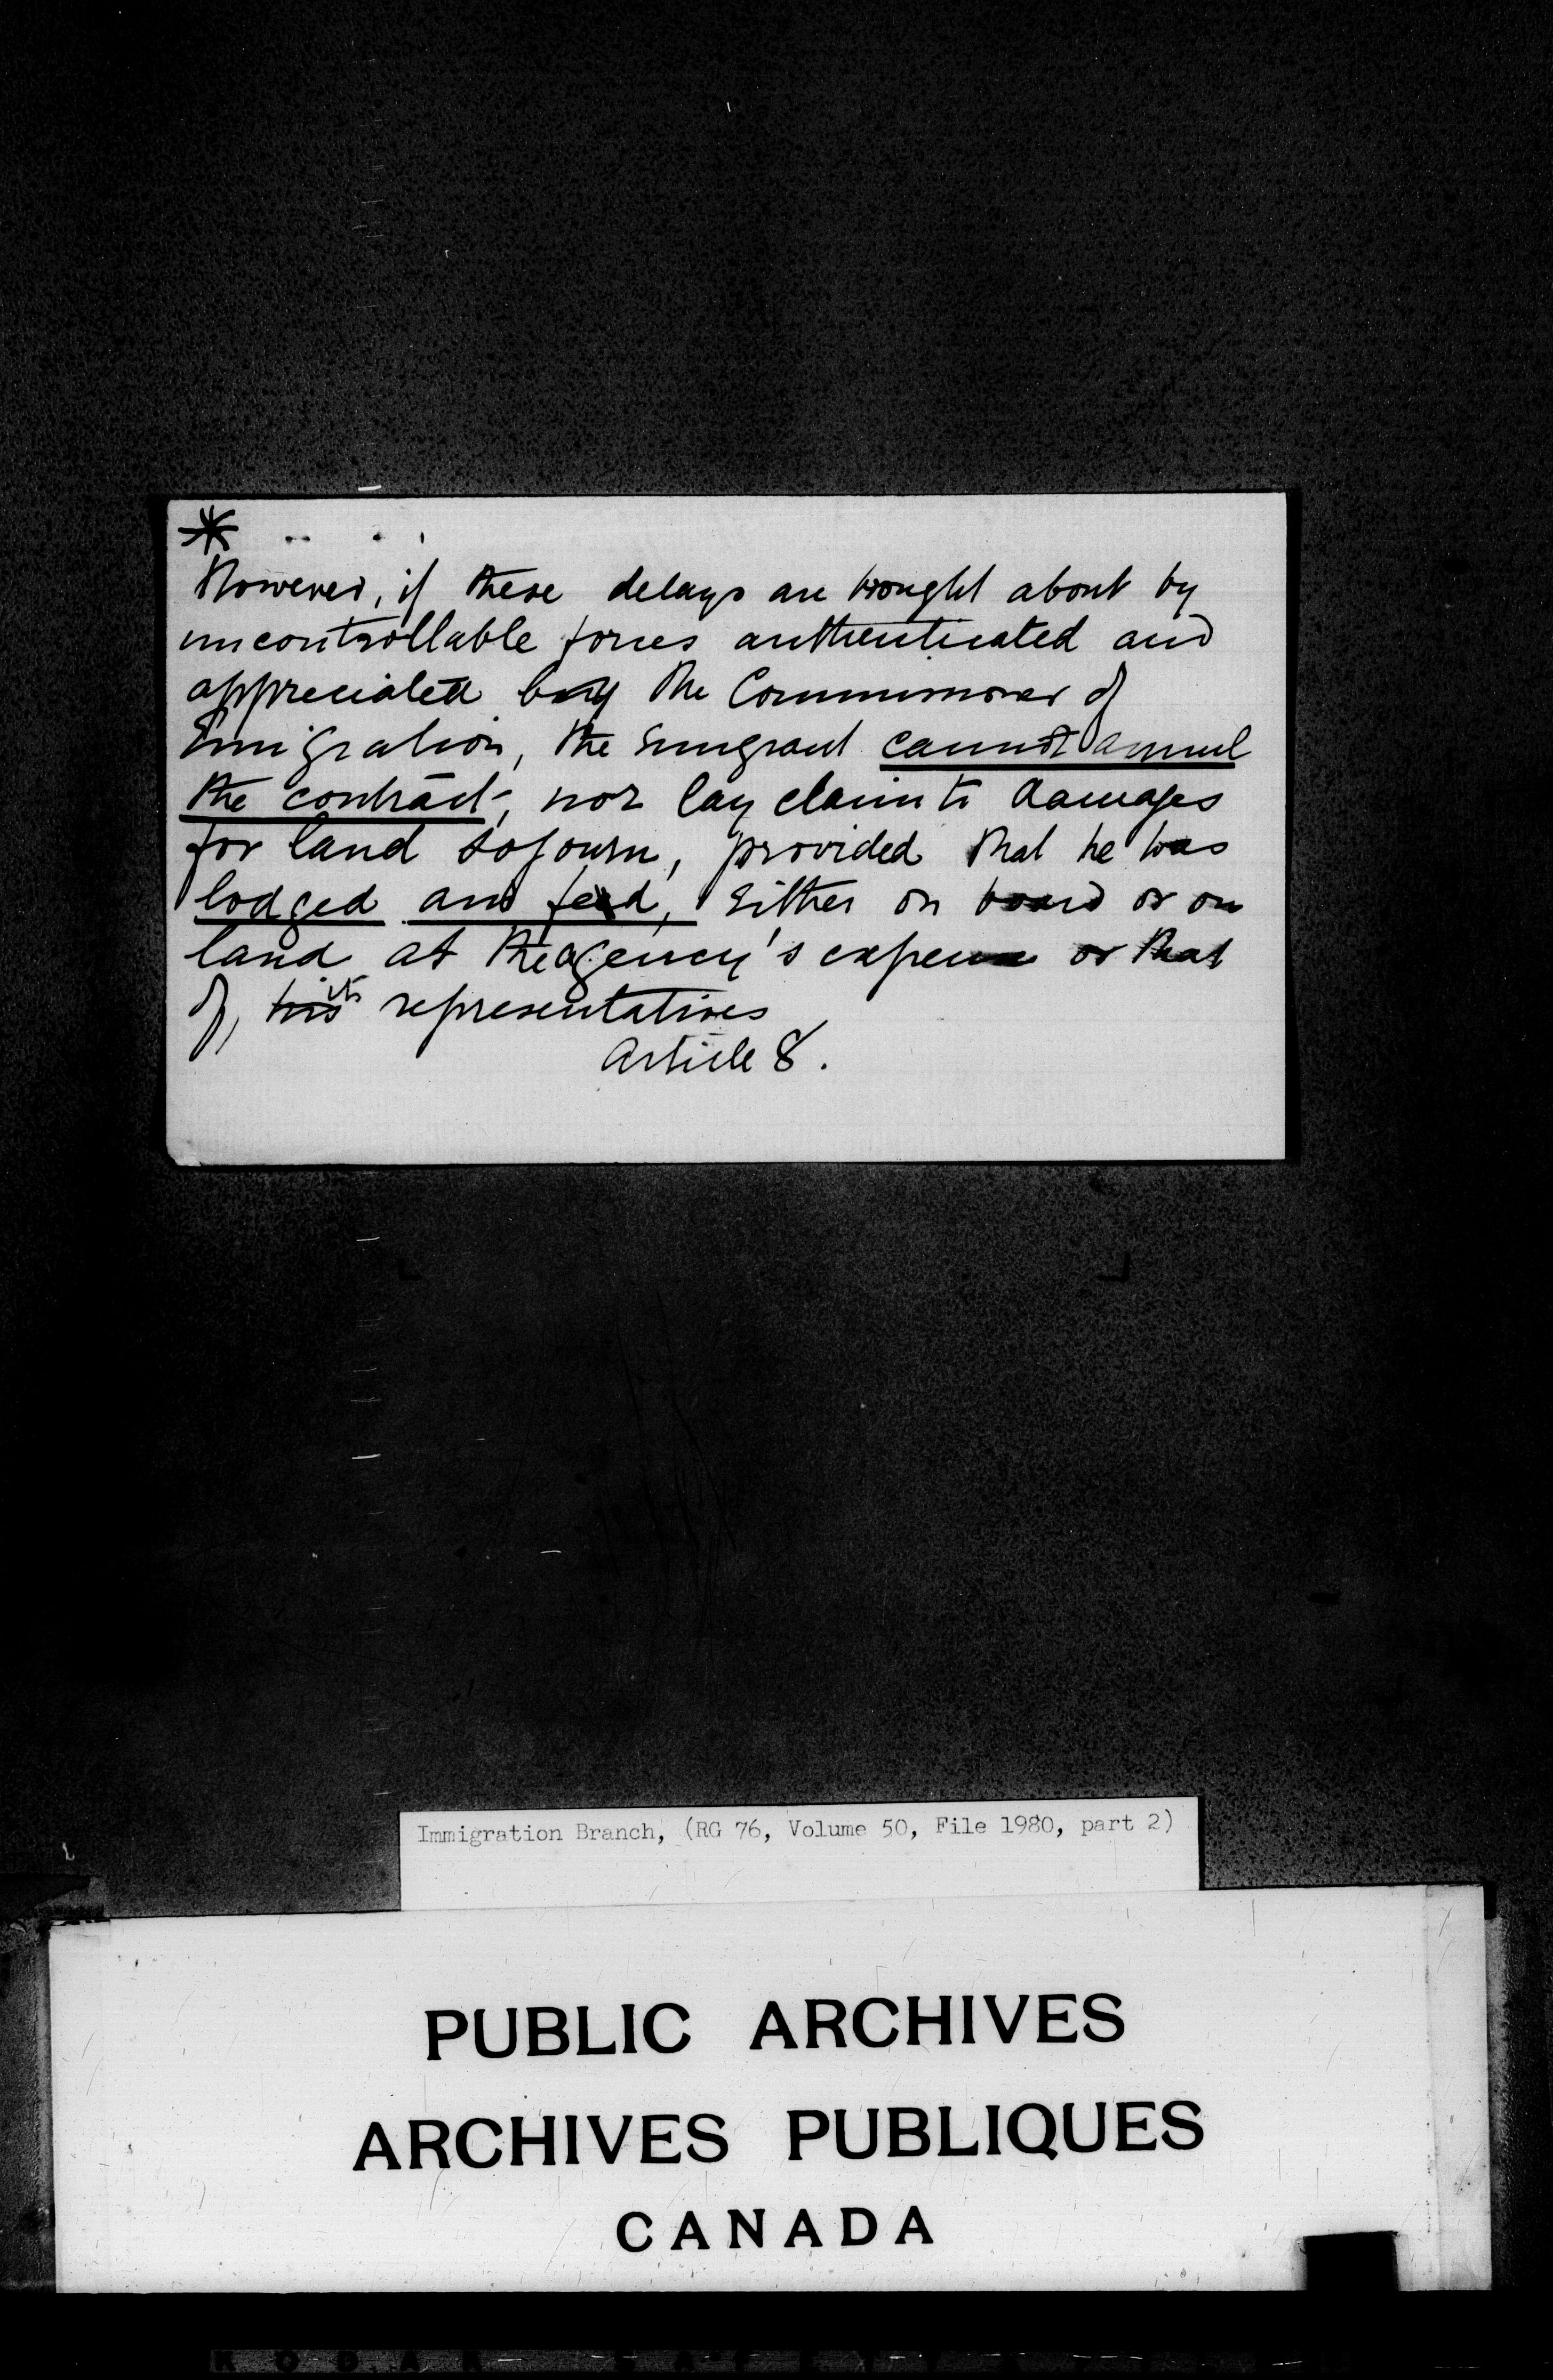 *
However, if these delays are brought about by
uncontrollable forces authenticated and
appreciated by the Commissioner of
Emigration, the emigrant cannot annul
the contract, nor lay claim to damages
for land sojourn, provided that he was
lodged and fed, either on board or on
land at the agency's expense or that
of, his its representatives
Article 8.
Immigration Branch, (RG 76, Volume 50, File 1980, part 2)
PUBLIC ARCHIVES
ARCHIVES PUBLIQUES
CANADA